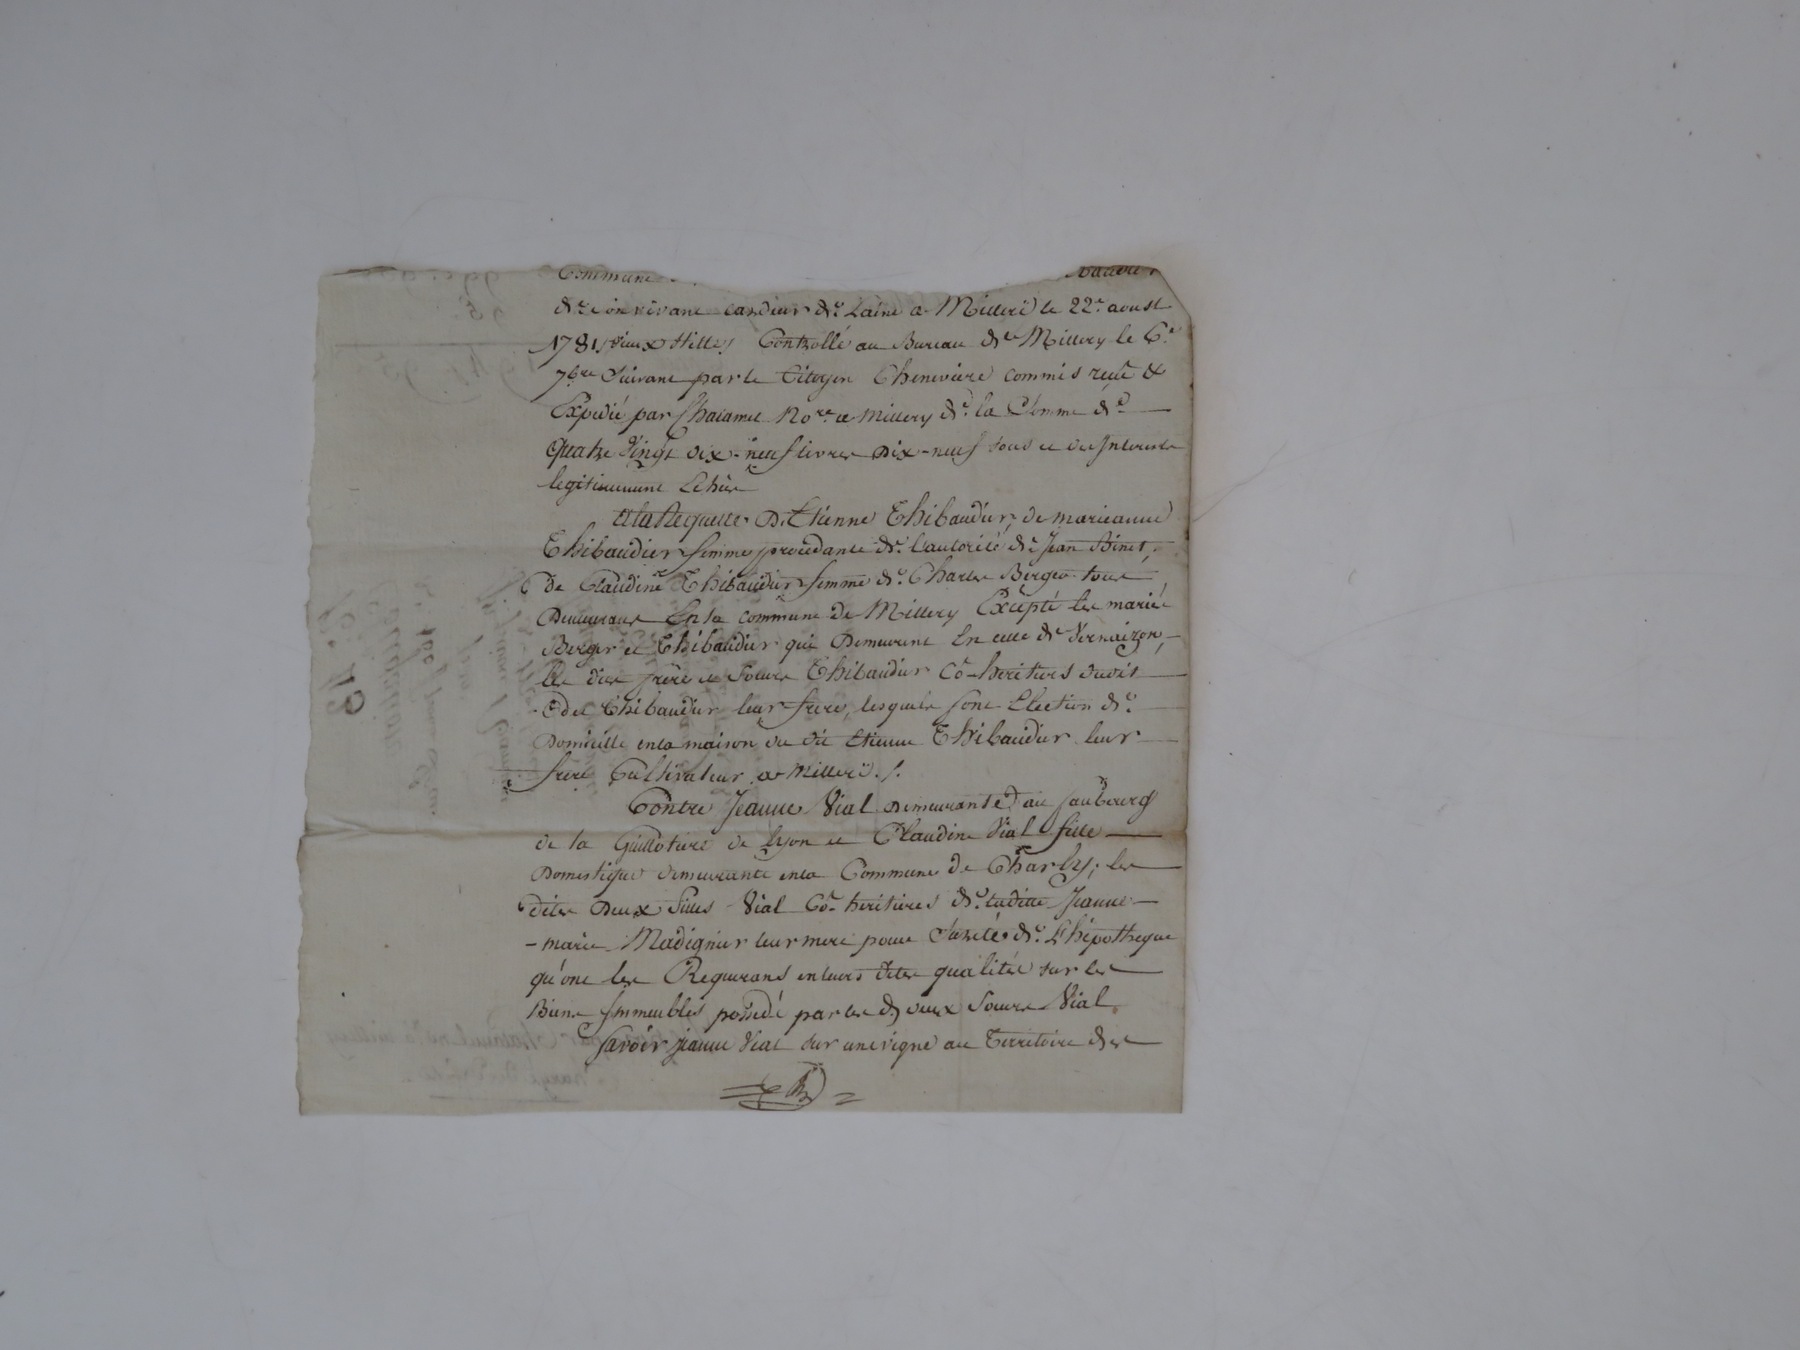 Commune
de son vivant cardeur de Laine a Milleri le 22e aoust
1781 Controllé au Bureau de Millery le 6e
7bre Suivant par le Citoyen Chenevière commis reçu &
Expedié par Chatanel Nore a Millery de la Somme de
Quatre vingt dix-neuf livres Dix-neuf sous et des Interets
legitimement Echus
A la Requette D'Etienne Thibaudier, de marieanne
Thibaudier femme procedante de l'autorité de Jean Binet,
de Claudine Thibaudier femme de Charles Berger tous
Demeurans En la commune de Millery Excepté les mariés
Berger et Thibaudier qui Demeurent En celle de Vernaizon,
les dits frère et Soeurs Thibaudier Co-heritiers dudit
Thibaudier leur frere, lesquels font Election de
Domicille en la maison du dit Etienne Thibaudier leur
frere Cultivateur a Milleri
Contre Jeanne Vial Demeurante au fauBourg
de la Guillotiere de Lyon et Claudine Vial fille
Domestique demeurante en la Commune de Charly, les
dites Deux filles Vial Co-heritieres de laditte Jeanne-
-marie Madignier leur mere pour Sureté de L'hipotheque
qu'ont les Requerans en leurs dites qualités sur les
Biens Immeubles possedé par les d deux Soeurs Vial
Savoir jeanne Vial sur une vigne au Territoire des